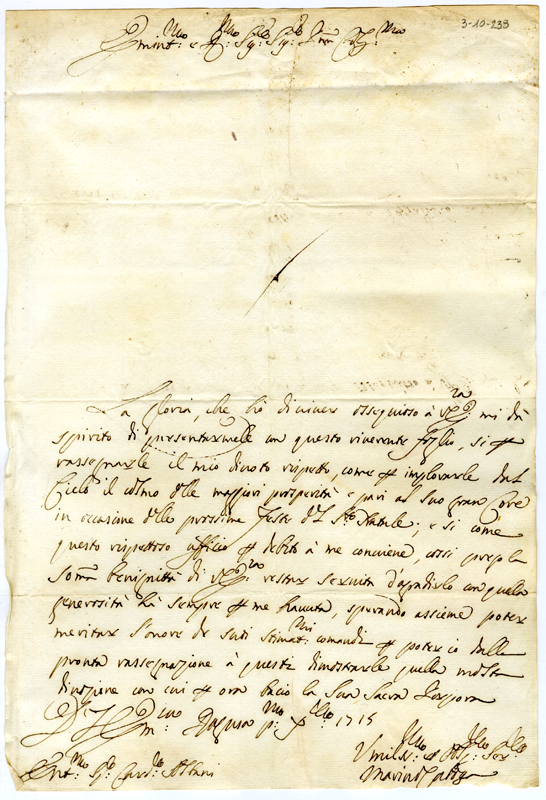 3-10-238
Emin:mo e R:mo Sig:re Sig:re P:ron Col:mo
La gloria, che hò di viver ossequioso à V. E:za mi dà
spirito di presentarmele con questo riverente foglio, sì per
rassegnarle il mio divoto rispetto, come per implorarle dal
Cielo il colmo delle maggiori prosperità, e pari al suo gran Core
in occasione delle prossime Feste del S:to Natale; e sì come
questo rispettoso ufficio per debito à me conviene, così prego la
som:a benignità di V. E:za restar servita d'agradirlo con quella
generosità hà sempre per me havuta, sperando assieme poter
meritar l'onore de suoi stimat:mi comandi per poter io dalla
pronta rassegnazione à questi dimostrarle quella
divozione con cui per ora bacio la Sua Sacra Porpora
Di V. Em:za Ragusa p:mo X:bre 1715
Em:mo Sig:r Card:le Albani
Umiliss:mo et Obl:mo Ser:re
Marino